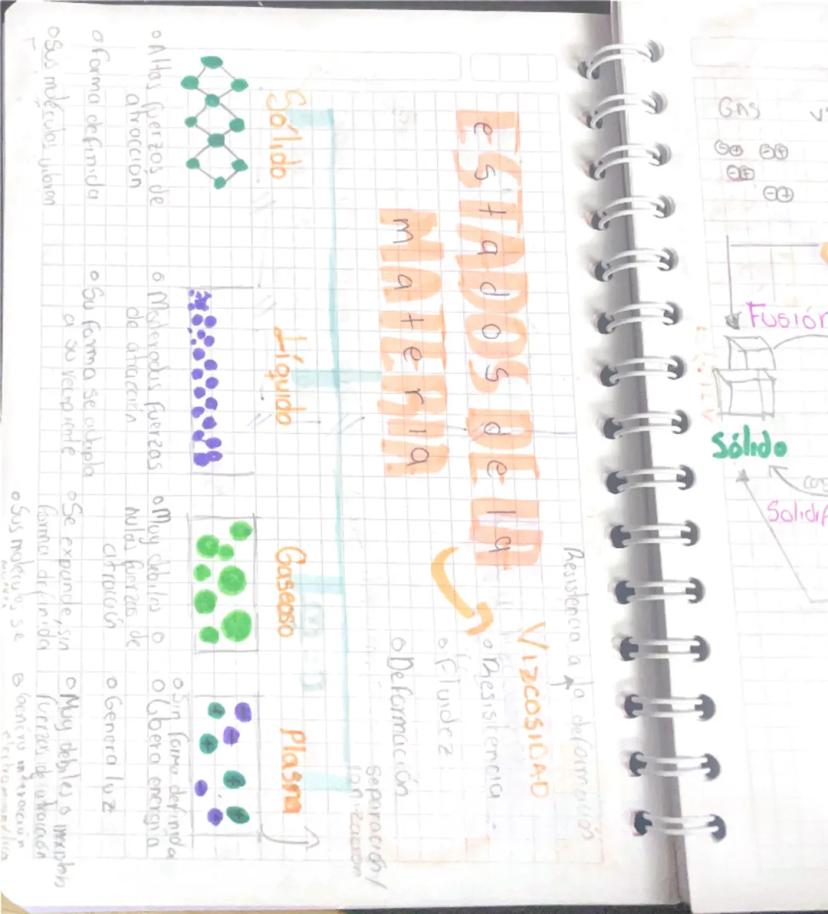 Resistencia a la deformación
VIZCOSIDAD
ESTADOS DE LA
estados de la
MATERIA
materia
Resistencia
Fluidez
Deformación
separación/
ionización
Sólido
Altas fuerzas de
atracción
Forma definida
Sus moléculas vibran
Líquido
Moderadas fuerzas
de atracción
Su forma se adapta
a su recipiente
Gaseoso
Muy debiles o
nulas fuerzas de
atracción
Se expande, sin
forma definida
Sus moleculas se
Plasma
Sin forma definida
Libera energia
Genera luz
Muy debiles o
fuerzas de atracción
GAS
Fusión
Sólido